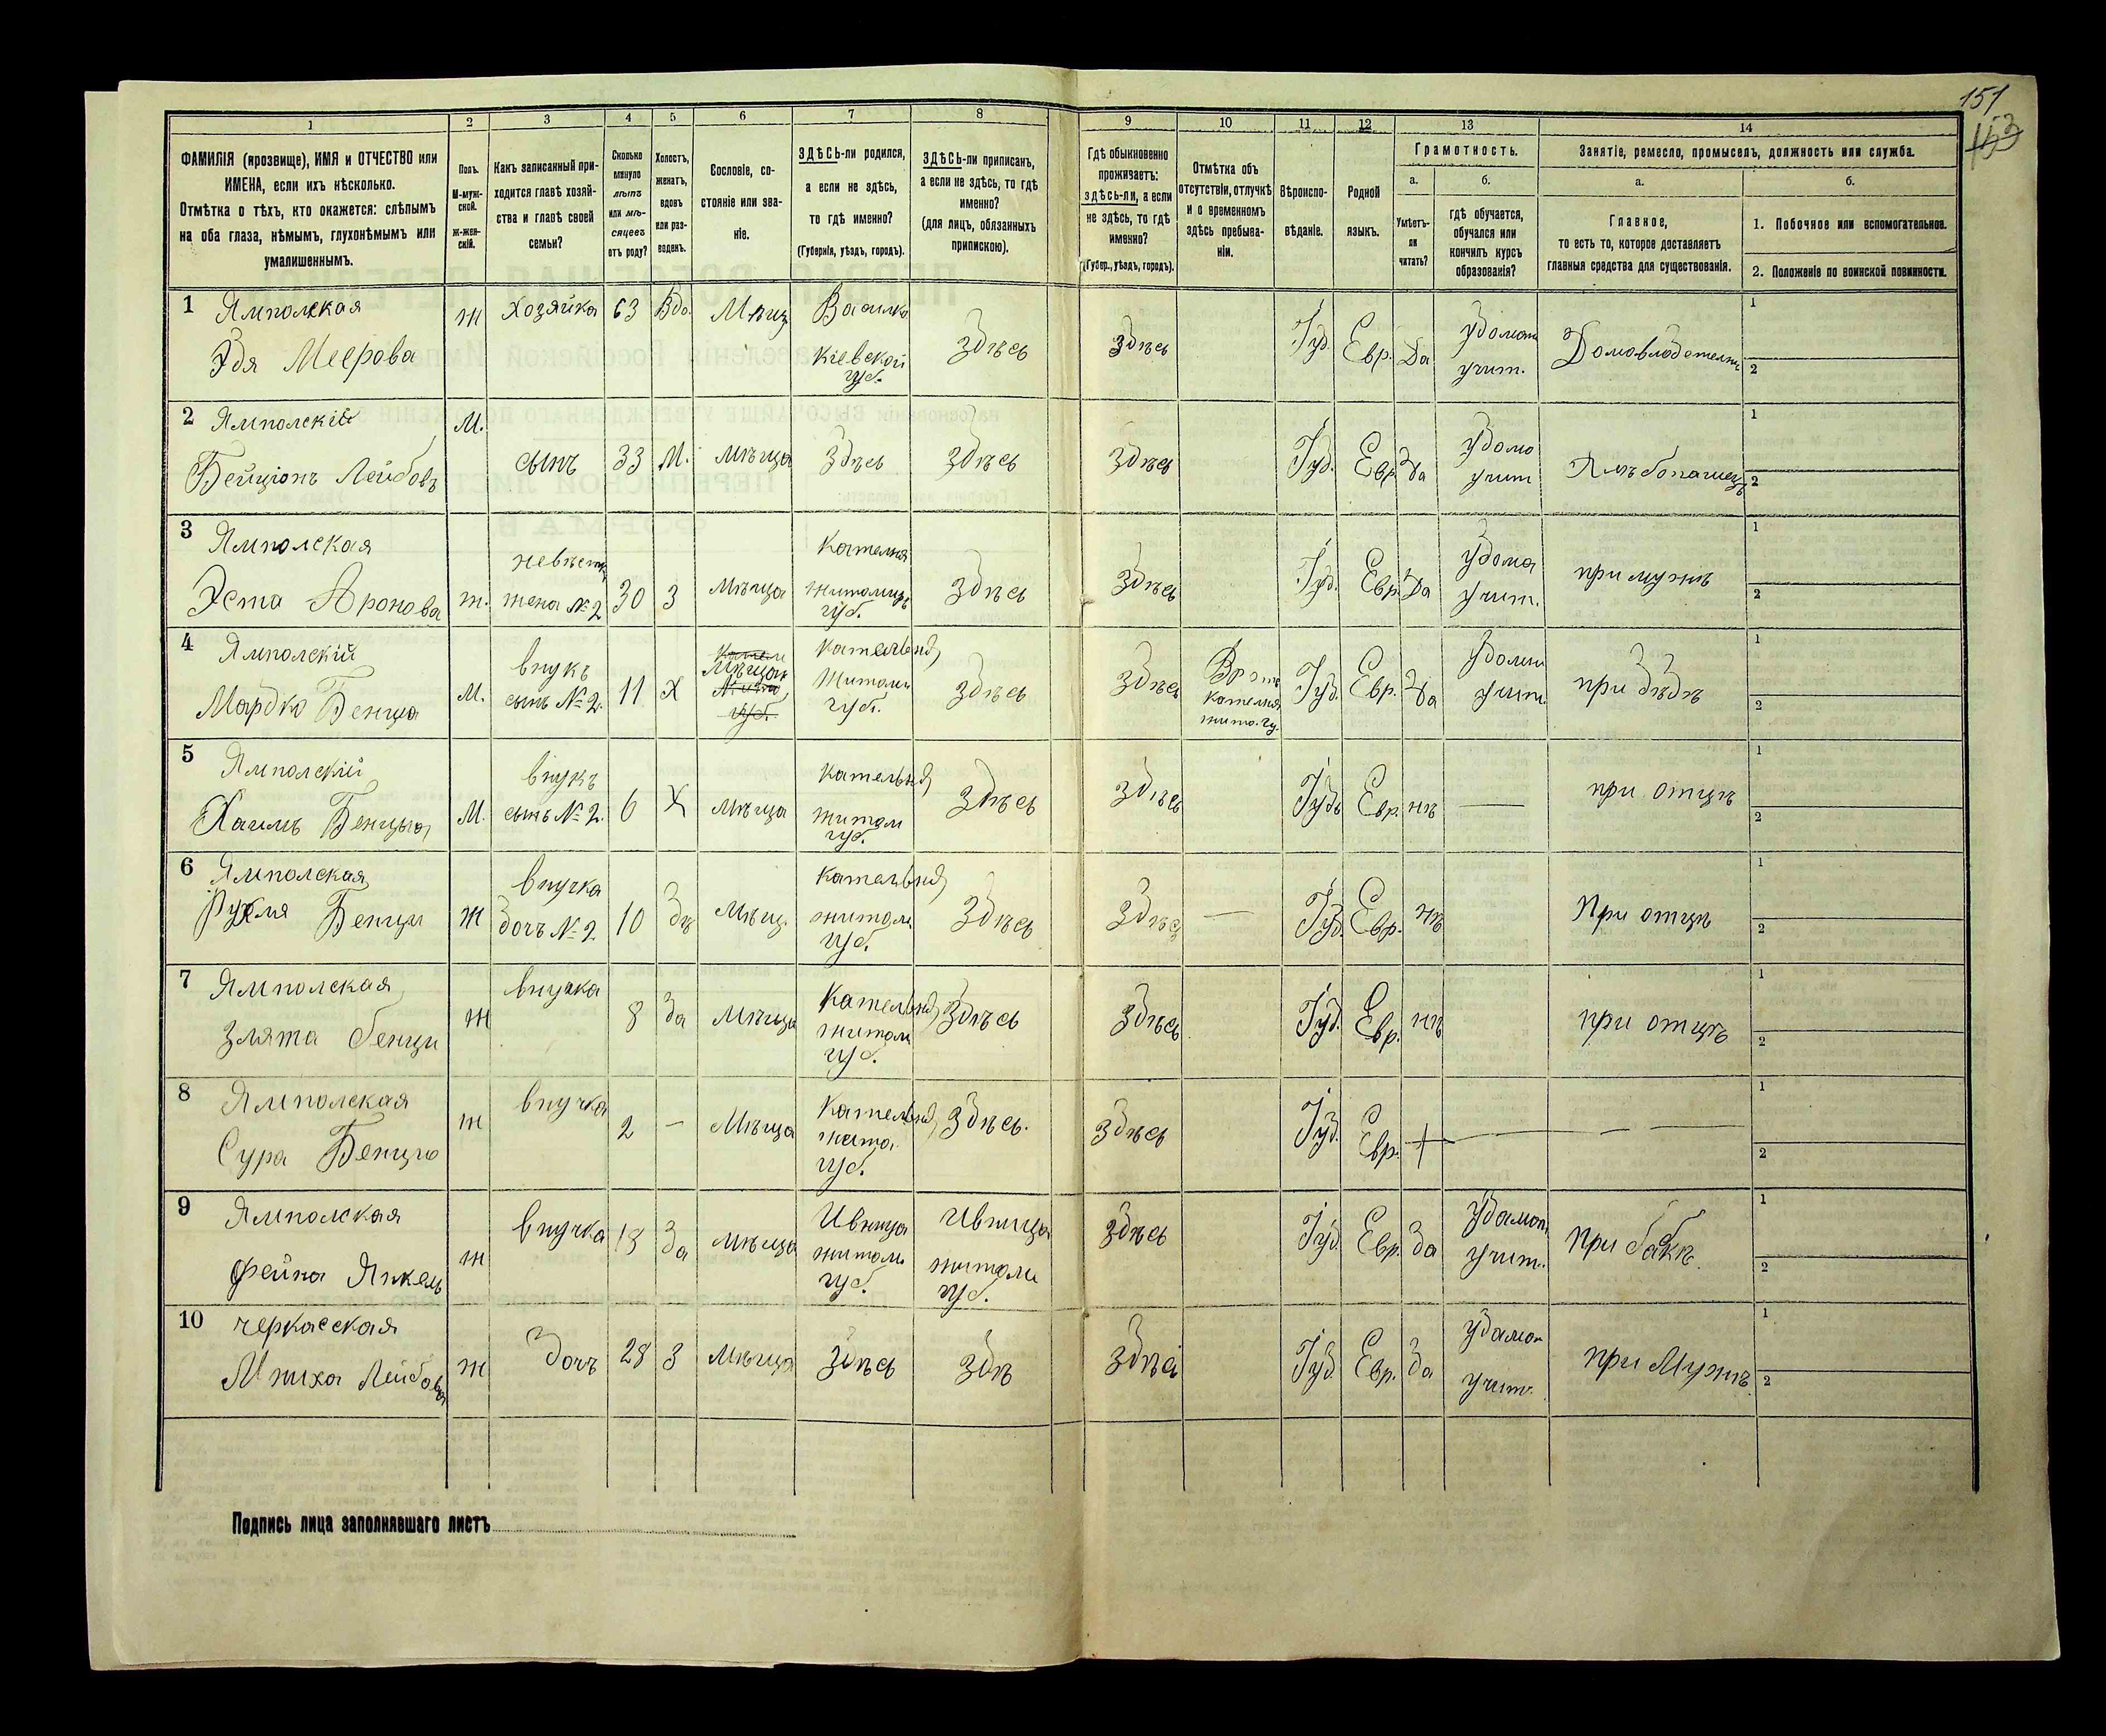 151
153
1 2 3 4 5 6 7 8 9 10 11 12 13 14
ФАМИЛІЯ (прозвище), ИМЯ и ОТЧЕСТВО или
ИМЕНА, если ихъ нѣсколько.
Отмѣтка о тѣхъ, кто окажется: слѣпымъ
на оба глаза, нѣмымъ, глухонѣмымъ или
умалишеннымъ.
Полъ.
М-муж-
ской.
Ж-жен-
скій.
Какъ записанный при-
ходится главѣ хозяй-
ства и главѣ своей
семьи?
Сколько
минуло
лѣтъ
или мѣ-
сяцевъ
отъ роду?
Холостъ,
женатъ,
вдовъ
или раз-
веденъ.
Сословіе, со-
стояніе или зва-
ніе.
ЗДѢСЬ-ли родился,
а если не здѣсь,
то гдѣ именно?
(Губернія, уѣздъ, городъ).
ЗДѢСЬ-ли приписанъ,
а если не здѣсь, то гдѣ
именно?
(для лицъ, обязанныхъ
припискою).
Гдѣ обыкновенно
проживаетъ:
здѣсь-ли, а если
не здѣсь, то гдѣ
именно?
(Губер., уѣздъ, городъ).
Отмѣтка объ
отсутствіи, отлучкѣ
и о временномъ
здѣсь пребыва-
ніи.
Вѣроиспо-
вѣданіе.
Родной
языкъ.
Грамотность.
а.
Умѣетъ-
ли
читать?
б.
гдѣ обучается,
обучался или
кончилъ курсъ
образованія?
Занятіе, ремесло, промыселъ, должность или служба.
а.
Главное,
то есть то, которое доставляетъ
главныя средства для существованія.
б.
1. Побочное или вспомогательное.
2. Положеніе по воинской повинности.
1 Ямполская
Эдя Меерова
Ж Хозяйка 63 Вдо. Мѣщ
Кіевской
губ.
Здѣсь Здѣсь Іуд. Евр. Да
учит.
1
2
2 Ямполскій
Бенціонъ Лейбовъ
М. сынъ 33 М. мѣща Здѣсь Здѣсь Здѣсь Іуд. Евр. Да
удома
учит
1
2
3 Ямполская
Эста Аронова
ж.
жена № 2
30 З мѣща
Кателня
губ.
Здѣсь Здѣсь Іуд. Евр. Да
удома
учит.
при мужѣ
1
2
4 Ямполскій
Мардко Бенциа
М.
внукъ
сынъ № 2.
11 Х
губ.
Кательня
Житоми
губ.
Здѣсь Здѣсь
Кателня
жито. гу.
Іуд. Евр. Да
учит.
при дѣдѣ
1
2
5 Ямполскій
Хаимъ Бенцыа
М.
внукъ
сынъ № 2.
6 Х мѣща
Кательня
житом
губ.
Здѣсь Здѣсь Іудь Евр. нѣ —
при отцѣ
1
2
6 Ямполская
Рухля Бенци
Ж
внучка
дочъ № 2.
10 Мѣщ.
Кательня
житом.
губ.
Здѣсь Здѣсь — Іуд. Евр. нѣ
При отцѣ
1
2
7 Ямполская
Злята бенци
Ж внучка 8 да Мѣща
Кательня
житом
губ.
Здѣсь Здѣсь Іуд. Евр. нѣ
при отцѣ
1
2
8 Ямполская
Сура Бенцы
Ж внучка 2 — Мѣща
Кательня
жито.
губ.
Здѣсь. Здѣсь Іуд. Евр. — — —
1
2
9 Ямполская
Фейга Янкель
Ж внучка 13 да мѣща
Ивница
житоми
губ.
Ивница
житоми
губ.
Здѣсь Іуд. Евр. да
учит.
При бабкѣ
1
2
10 Черкасская
Лейбова
Ж дочъ 28 З мѣща Здѣсь Здѣ Здѣсь Іуд. Евр. да
учит.
при Мужѣ
1
2
Подпись лица заполнявшаго листъ